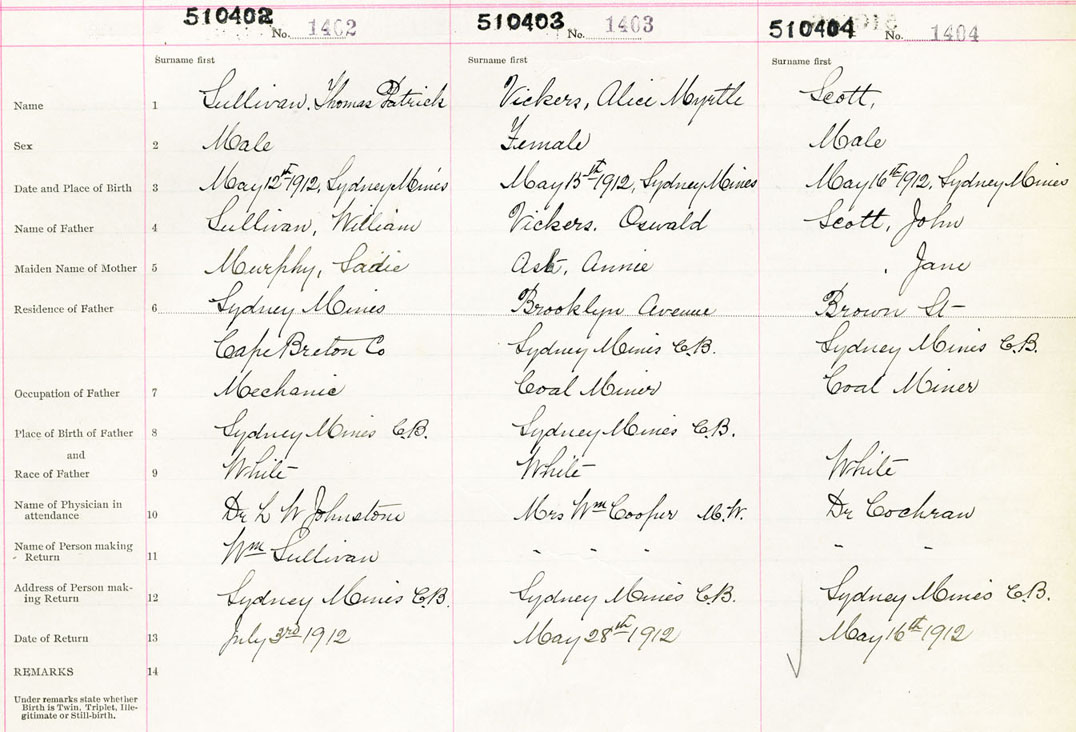 510402 No. 1402 510403 No. 1403 510404 No. 1404
Surname first Surname first Surname first
Name 1 Sullivan, Thomas Patrick Vickers, Alice Myrtle Scott,
Sex 2 Male Female Male
Date and Place of Birth 3 May 12th 1912, Sydney Mines May 15th 1912, Sydney Mines May 16th 1912, Sydney Mines
Name of Father 4 Sullivan, William Vickers. Oswald Scott, John
Maiden Name of Mother 5 Murphy, Sadie Annie . Jane
Residence of Father 6 Sydney Mines Brooklyn Avenue Brown St
Cape Breton Co Sydney Mines C.B. Sydney Mines C.B.
Occupation of Father 7 Mechanic Coal Miner Coal Miner
Place of Birth of Father 8 Sydney Mines C.B. Sydney Mines C.B.
and
Race of Father 9 White White White
Name of Physician in
attendance 10 Dr L W Johnstone Mrs Wm Cooper M.W. Dr Cochran
Name of Person making
Return 11 Wm Sullivan " " " " "
Address of Person mak-
ing Return 12 Sydney Mines C.B. Sydney Mines C.B. Sydney Mines C.B.
Date of Return 13 July 3rd 1912 May 28th 1912 May 16th 1912
REMARKS 14
Under remarks state whether
Birth is Twin, Triplet, Ille-
gitimate or Still-birth.